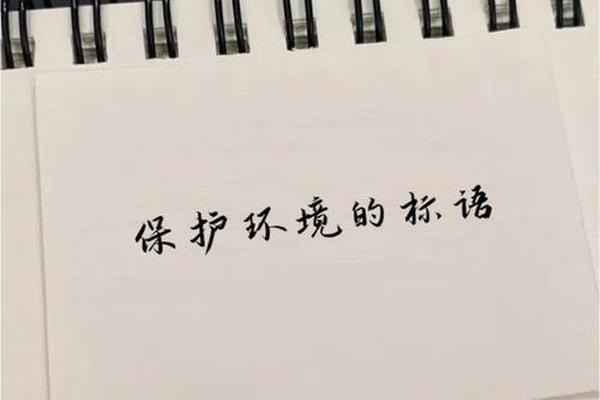 保护环境的标语